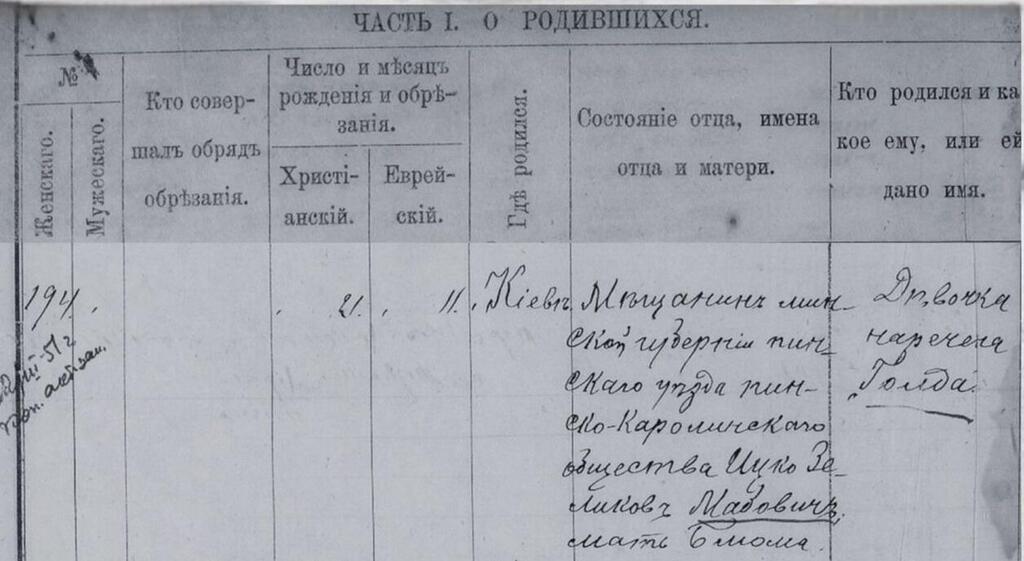 ЧАСТЬ I. О РОДИВШИХСЯ.
№
Женскаго.
Мужескаго.
Кто совер-
шалъ обрядъ
обрѣзанія.
Число и мѣсяцъ
рожденія и обрѣ-
занія.
Христі-
анскій.
Еврей-
скій.
Гдѣ родился.
Состояніе отца, имена
отца и матери.
Кто родился и ка
кое ему, или ей
дано имя.
194.
21.
11.
Кіевъ
Мѣщанинъ мин-
ской губерніи пин-
скаго уѣзда пин-
ско-Каролинскаго
общества Ицко Зе-
ликовъ Мабовичъ,
мать Блюма.
Дѣвочка
наречена
Голда.